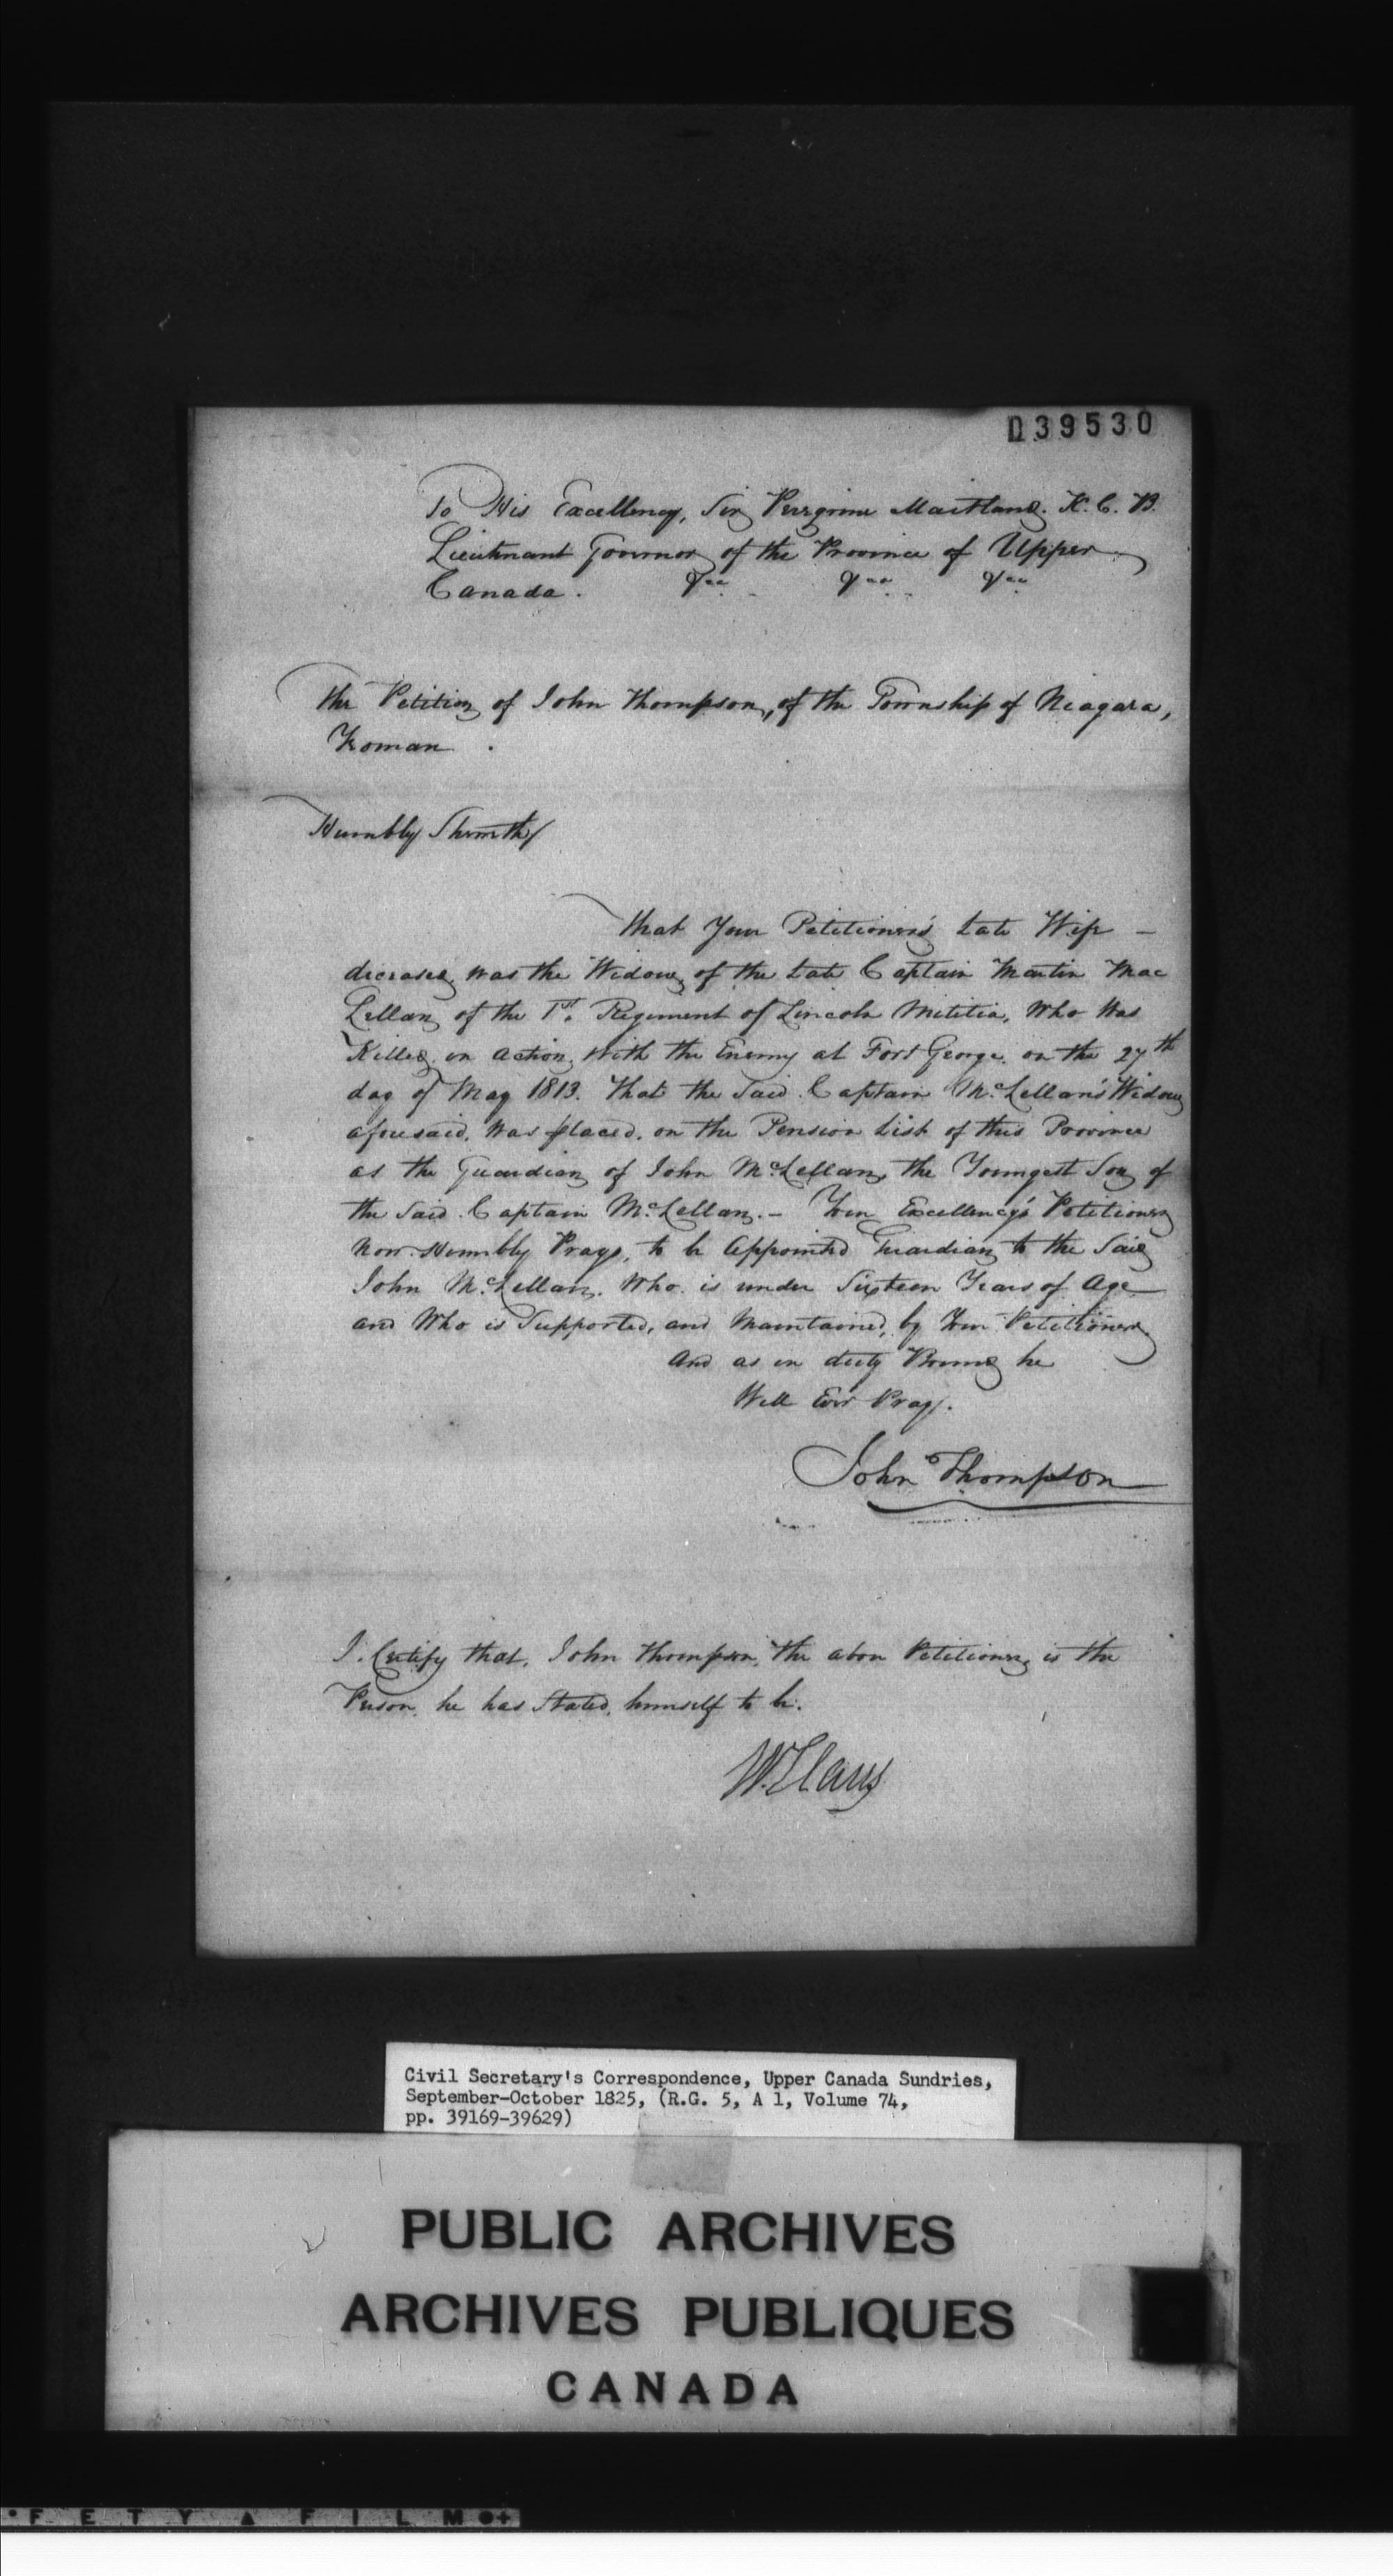 D39530
To His Excellency, Sir Peregrine Maitland. K. C. B.
Lieutenant Governor of the Province of Upper
Canada. &c &c &c
The Petition of John Thompson, of the Township of Niagara,
Yeoman.
Humbly Sheweth/
That Your Petitioner's Late Wife -
deceased, was the Widow of the Late Captain Martin Mac
Lellan of the 1st. Regiment of Lincoln Militia, Who Was
Killed, in Action, With the Enemy at Fort George, on the 27th
day of May 1813. That the Said Captain McLellan's Widow
aforesaid, Was placed, on the Pension List of this Province
as the Guardian of John McLellan, the Youngest Son of
the Said Captain McLellan. - Your Excellency's Petitioner
Now Humbly Prays, to be Appointed Guardian to the Said
John McLellan. Who is under Sixteen Years of Age
and Who is Supported, and Maintained, by Your Petitioner.
And as in duty Bound he
Will Ever Pray/.
John Thompson
I. Certify that, John Thompson, the above Petitioner, is the
Person, he has Stated, himself to be.
W. Claus
Civil Secretary's Correspondence, Upper Canada Sundries,
September-October 1825, (R.G. 5, A 1, Volume 74,
pp. 39169-39629)
PUBLIC ARCHIVES
ARCHIVES PUBLIQUES
CANADA
FETY FILM